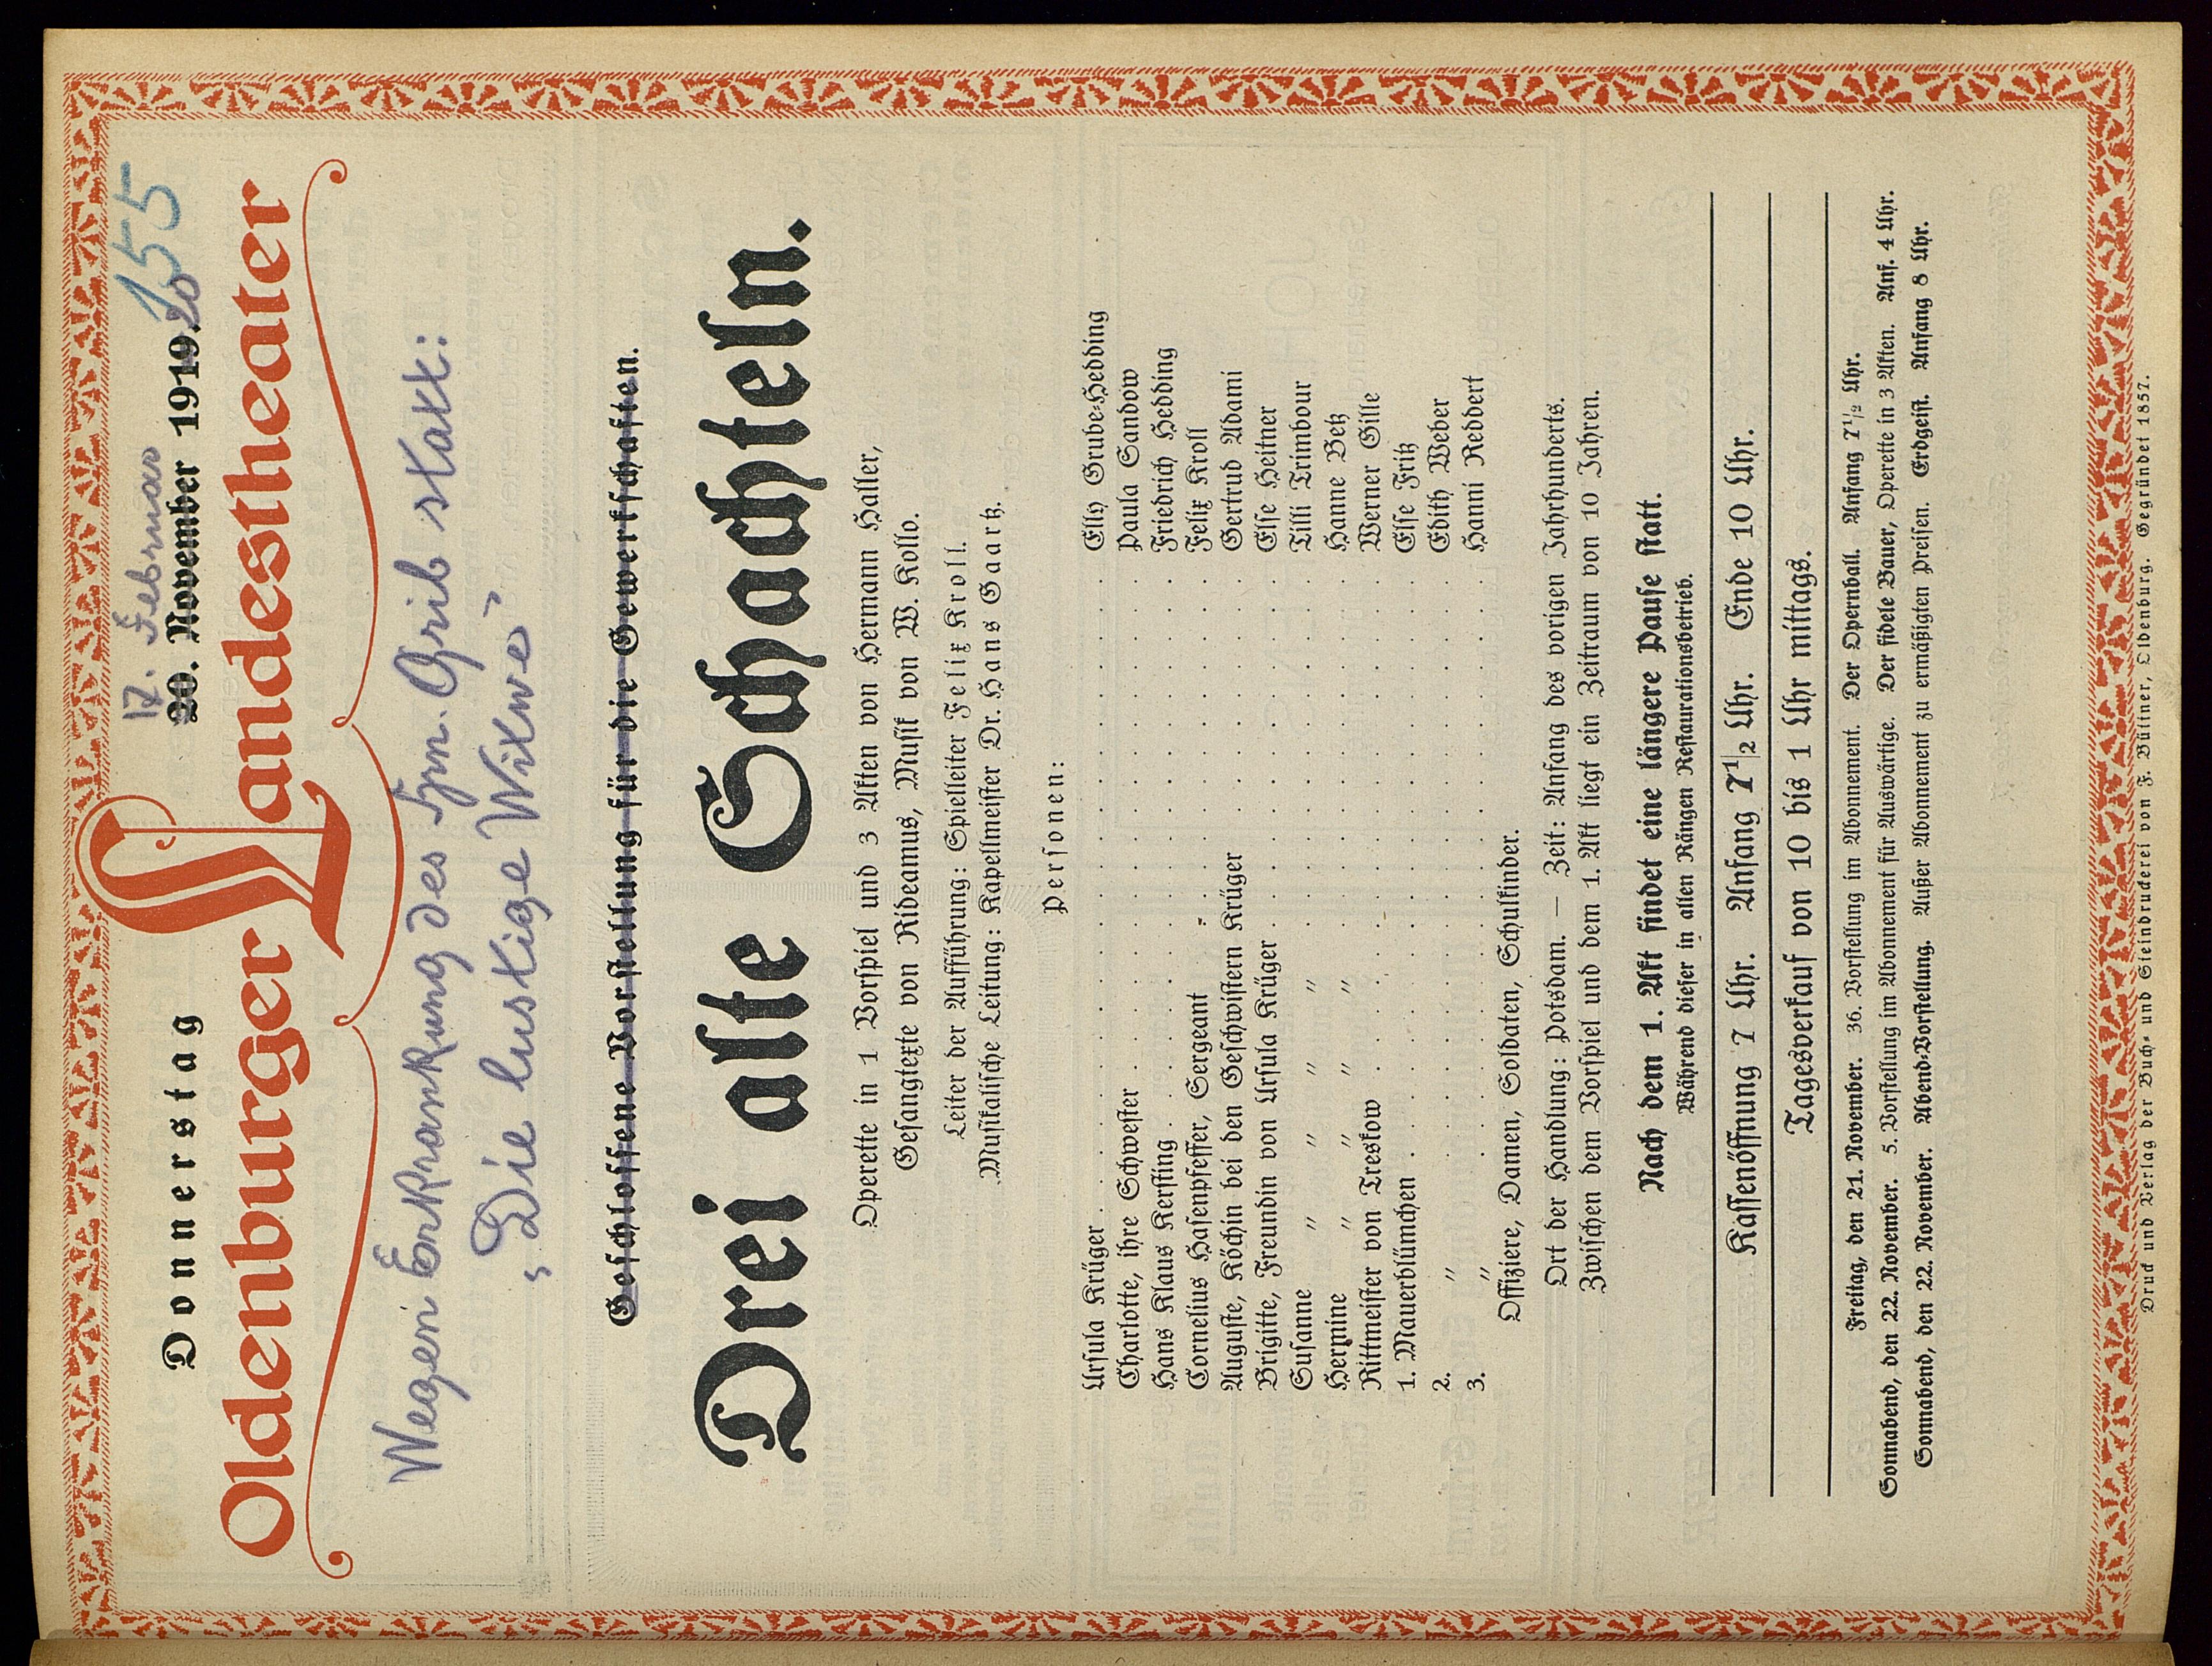 155
17. Februar
Donnerstag 20. November 1919. 20
Oldenburger Landestheater
Wegen Erkrankung des Frn. Grib statt:
"Die lustige Witwe"
Geschlossene Vorstellung für die Gewerkschaften.
Drei alte Schachteln.
Operette in 1 Vorspiel und 3 Akten von Hermann Haller,
Gesangtexte von Rideamus, Musik von W. Kollo.
Leiter der Aufführung: Spielleiter Felix Kroll.
Musikalische Leitung: Kapellmeister Dr. Hans Gaartz.
Personen:
Ursula Krüger . . . . . . . . . . Elly Grube-Hedding
Charlotte, ihre Schwester . . . . . . . . . . Paula Sandow
Hans Klaus Kersting . . . . . . . . . . Friedrich Hedding
Cornelius Hasenpfeffer, Sergeant . . . . . . . . . . Felix Kroll
Auguste, Köchin bei den Geschwistern Krüger . . . . . . . . Gertrud Adami
Brigitte, Freundin von Ursula Krüger . . . . . . . . . . Else Heitner
Susanne " " " " . . . . . . . . . . Tilli Trimbour
Hermine " " " " . . . . . . . . . . Hanne Betz
Rittmeister von Treskow . . . . . . . . . . Werner Gille
1. Mauerblümchen . . . . . . . . . . Else Fritz
2. " . . . . . . . . . . Edith Weber
3. " . . . . . . . . . . Hanni Reddert
Offiziere, Damen, Soldaten, Schulkinder.
Ort der Handlung: Potsdam. — Zeit: Anfang des vorigen Jahrhunderts.
Zwischen dem Vorspiel und dem 1. Akt liegt ein Zeitraum von 10 Jahren.
Nach dem 1. Akt findet eine längere Pause statt.
Während dieser in allen Rängen Restaurationsbetrieb.
Kassenöffnung 7 Uhr. Anfang 7 1/2 Uhr. Ende 10 Uhr.
Tagesverkauf von 10 bis 1 Uhr mittags.
Freitag, den 21. November. 36. Vorstellung im Abonnement. Der Opernball. Anfang 7 1/2 Uhr.
Sonnabend, den 22. November. 5. Vorstellung im Abonnement für Auswärtige. Der fidele Bauer, Operette in 3 Akten. Anf. 4 Uhr.
Sonnabend, den 22. November. Abend-Vorstellung. Außer Abonnement zu ermäßigten Preisen. Erdgeist. Anfang 8 Uhr.
Druck und Verlag der Buch- und Steindruckerei von F. Büttner, Oldenburg. Gegründet 1857.